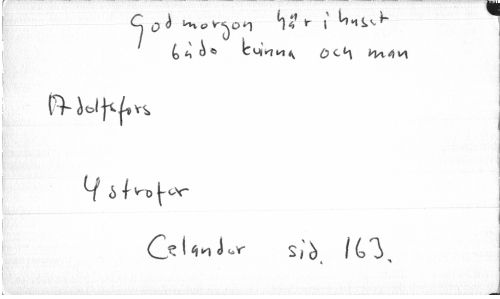 God morgon här i huset
både kvinna och man
Adolfsfors
4 strofer
Celander sid. 163.